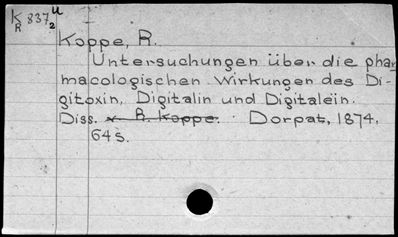 K 837 u
R 2
Koppe, R.
Untersuchungen über die phar
macologischen Wirkungen des Di-
gitoxin, Digitalin und Digitalein.
Diss. R. Koppe. Dorpat, 1874.
64 s.